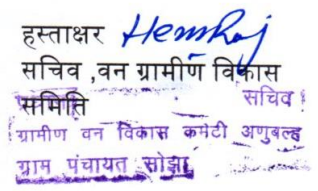 हस्ताक्षर Hemraj
सचिव ,वन ग्रामीण विकास
समिति
सचिव
ग्रामीण वन विकास कमेटी अणुबल्ह
ग्राम पंचायत सोझा